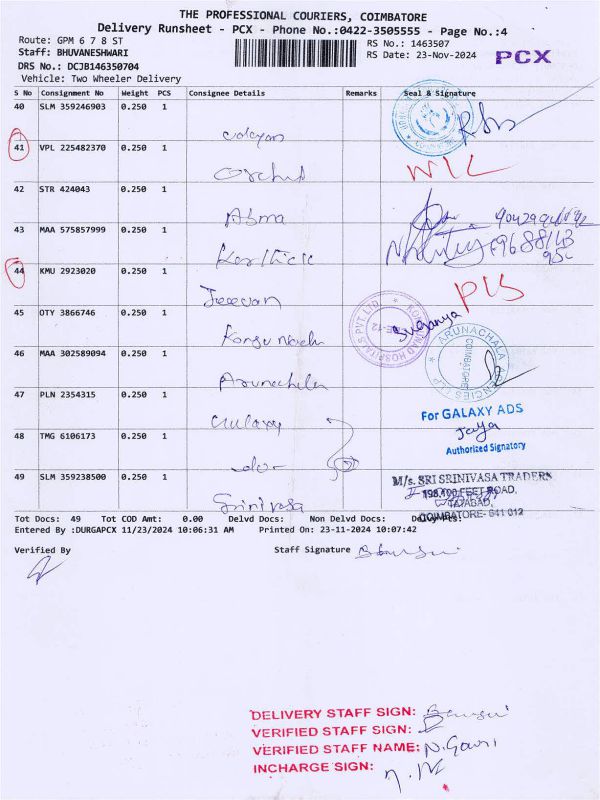 THE PROFESSIONAL COURIERS, COIMBATORE
Delivery Runsheet - PCX - Phone No.:0422-3505555 - Page No.:4
Route: GPM 6 7 8 ST
RS No.: 1463507
Staff: BHUVANESHWARI
RS Date: 23-Nov-2024
PCX
DRS No.: DCJB146350704
Vehicle: Two Wheeler Delivery
S No Consignment No Weight PCS Consignee Details Remarks Seal & Signature
40 SLM 359246903 0.250 1
41 VPL 225482370 0.250 1 Orchid
42 STR 424043 0.250 1 Abma
43 MAA 575857999 0.250 1 Karthick
44 KMU 2923020 0.250 1 Jeevan
45 OTY 3866746 0.250 1
Suganya
46 MAA 302589094 0.250 1 Arunachala
ARUNACHALA AGENCIES LLP
COIMBATORE
47 PLN 2354315 0.250 1 Galaxy
For GALAXY ADS
Jaya
Authorized Signatory
48 TMG 6106173 0.250 1
49 SLM 359238500 0.250 1 Srinivasa
M/s. SRI SRINIVASA TRADERS
198,100 FEET ROAD,
TATABAD,
COIMBATORE- 641 012
Tot Docs: 49 Tot COD Amt: 0.00 Delvd Docs: Non Delvd Docs: Delvy Pts:
Entered By :DURGAPCX 11/23/2024 10:06:31 AM Printed On: 23-11-2024 10:07:42
Verified By
Staff Signature
DELIVERY STAFF SIGN:
VERIFIED STAFF SIGN:
VERIFIED STAFF NAME: N.Gowri
INCHARGE SIGN: